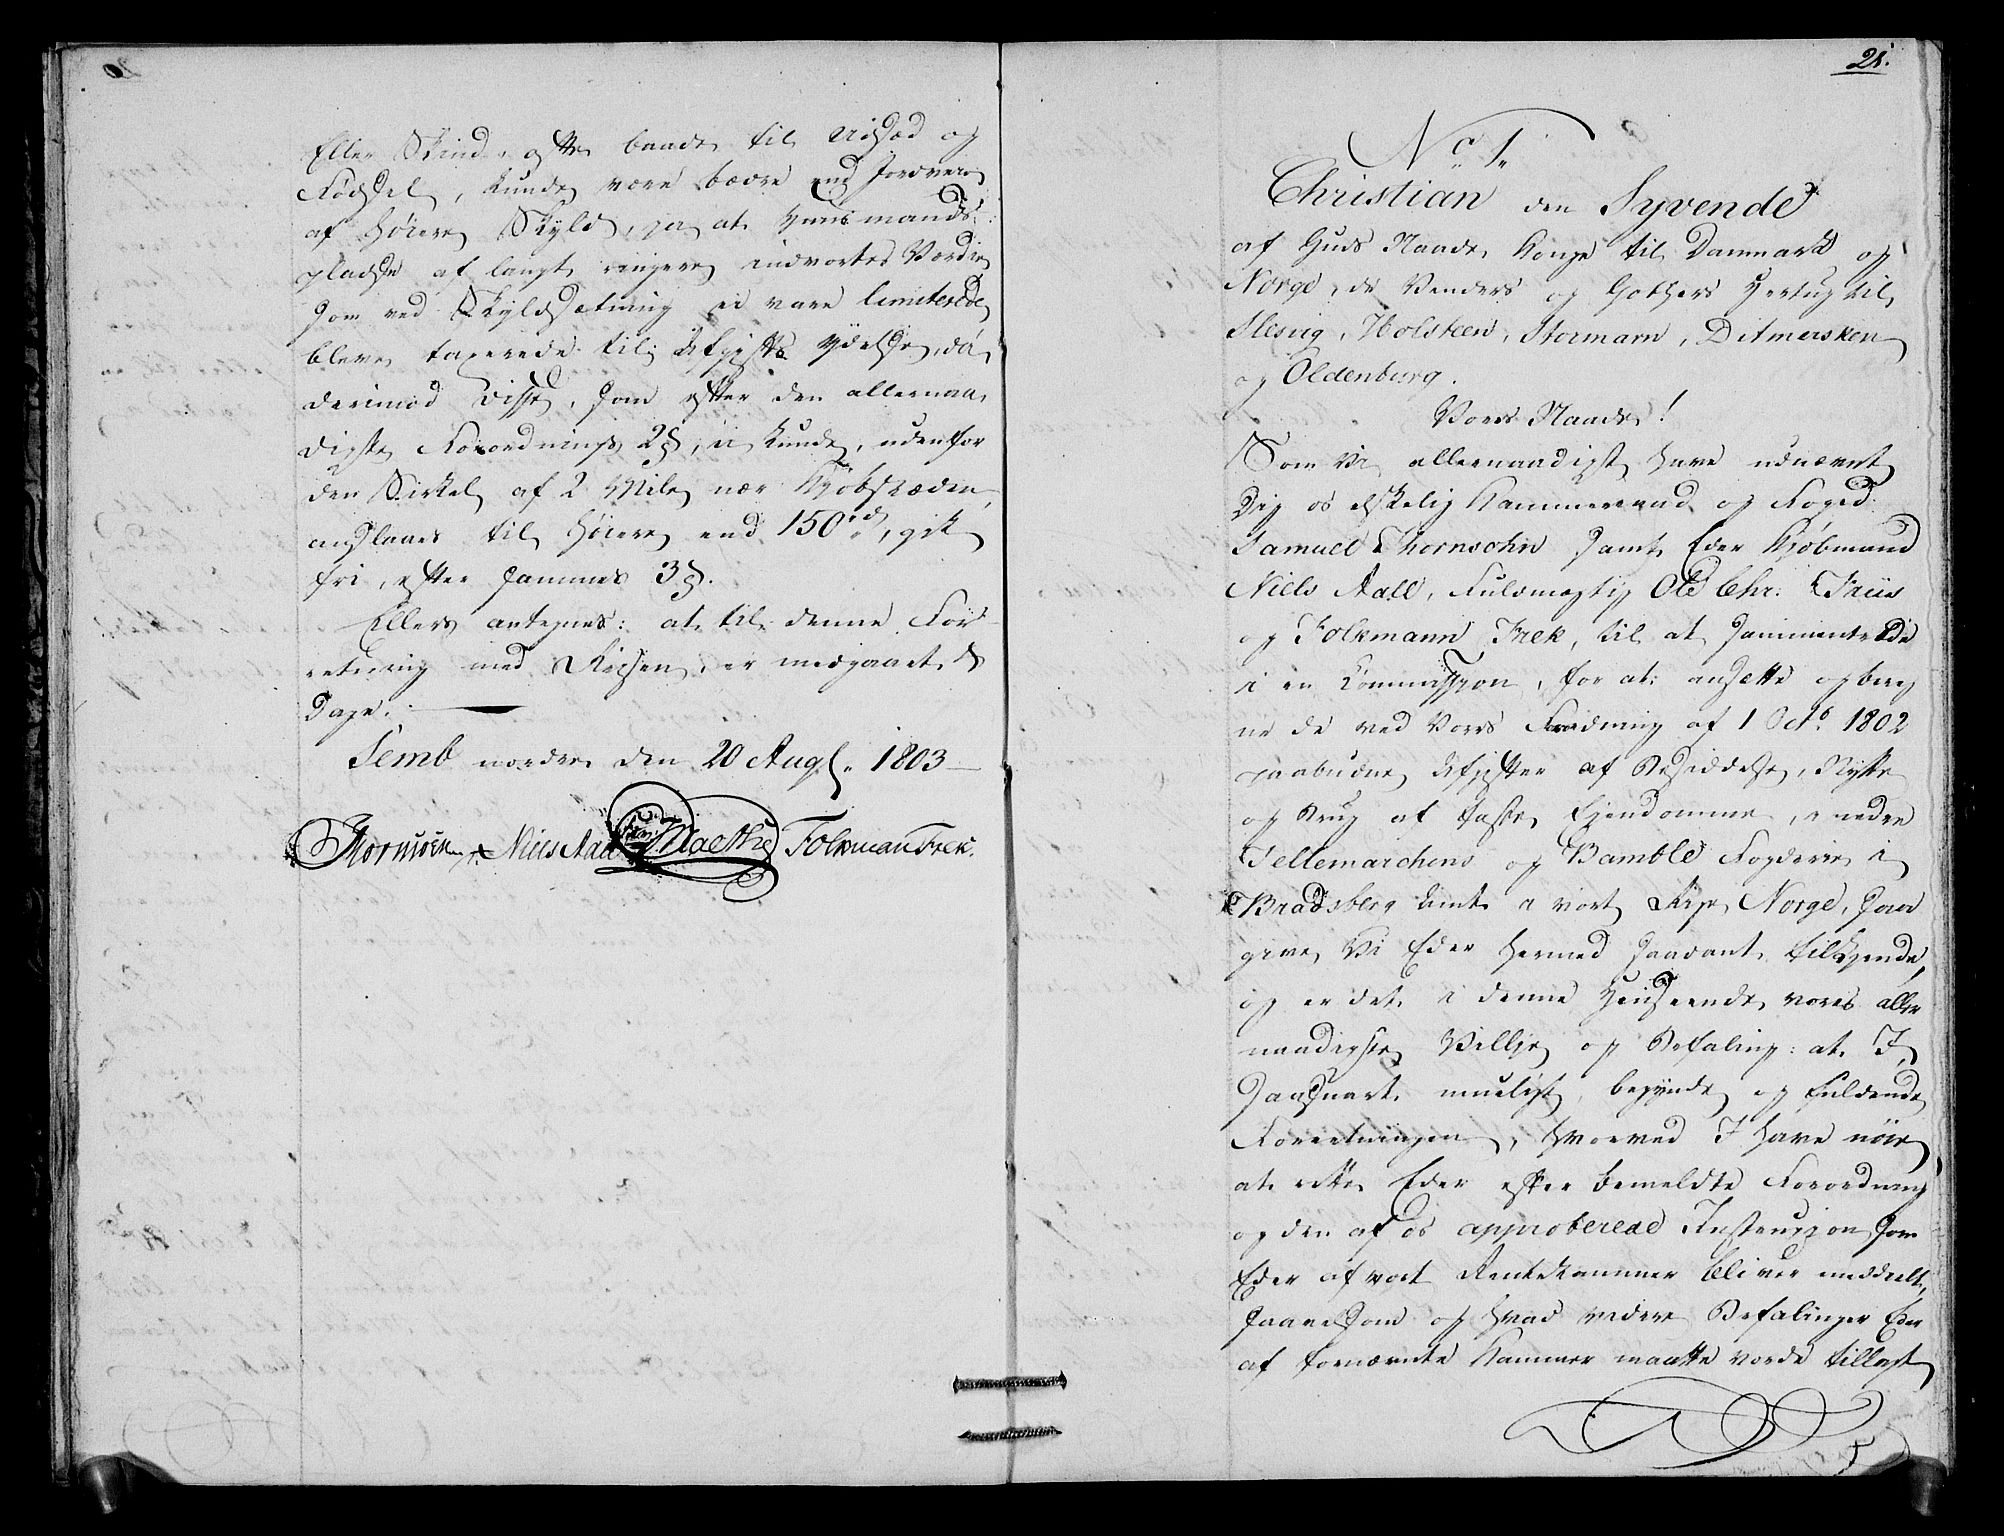 Eller Skinde, ofte baade til Udsæd og
Fødsel, kunde være bedre end Jordveie
af høiere Skyld, ja at Huusmands-
pladse af langt ringere indvortes Værdie
som ved Skyldsætning ei vare limiterede
bleve taxerede til Afgifts Ydelse, da
derimod disse, som efter den allernaa,
digste Forordnings 2§, ei kunde, udenfor
den Sirkel af 2 Mile nær Kjøbstæden,
anslaaes til høiere end 150 rd, gik
fri, efter sammes 3§.
Ellers antegnes: at til denne For
retning med Reisen, er medgaaet 8
Dage.
Semb nordre den 20 Aug. 1803
Thornsohn Niels Aall Maethe Folkman Frek.
21.
No 1.
Christian den Syvende
af Guds Naade, Konge til Danmark og
Norge, de Venders og Gothers Hertug til
Slesvig, Holsteen, Stormarn, Ditmersken
og Oldenburg.
Vores Naade!
Som Vi allernaadigst have udnævnt
Dig os elskelig Kammerraad og Foged
Samuel Thornsohn samt Eder Kjøbmand
Niels Aall, Fuldmægtig Ole Chr: Friis
og Folkmann Frek, til at sammentræde
i en Commission, for at ansætte og bereg
ne de ved Vores Frodning af 1 Octb. 1802
paabudne Afgifter af Besiddelse, Nytte
og Brug af faste Ejendomme, i nedre
Tellemarchens og Bamble Fogderie i
Bradsberg Amt i vort Rige Norge, saa
give Vi Eder hermed saadant tilkjende,
og er det i denne Henseende vores aller
naadigste Villje og Befaling: at I,
saasnart mueligt, begynde og fuldende
Forretningen, hvorved I have nøie
at rette Eder efter bemeldte Forordning
og den af os approberede Instruxion, som
Eder af vort Rentekammer bliver meddelt,
saavelsom og hvad videre Befalinger Eder
af fornævnte Kammer maatte vorde tillagt